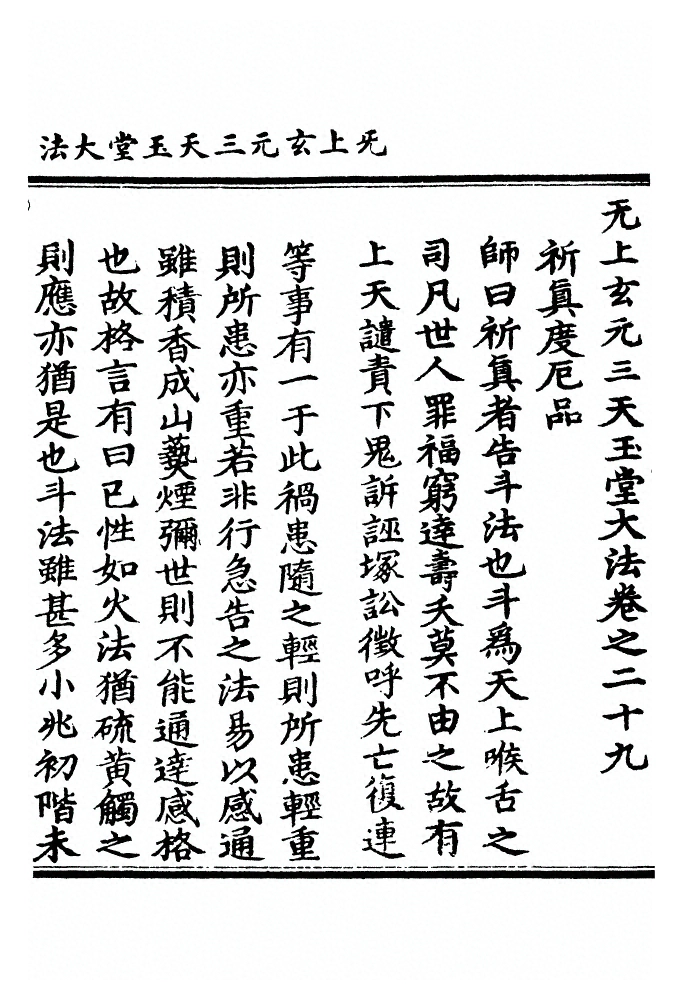 无上玄元三天玉堂大法
无上玄元三天玉堂大法卷之二十九
祈眞度厄品
師曰祈眞者告斗法也斗爲天上喉舌之
司凡世人罪福窮達壽夭莫不由之故有
上天譴責下鬼訴誣塚訟徵呼先亡復連
等事有一于此禍患隨之輕則所患輕重
則所患亦重若非行急告之法易以感通
雖積香成山爇煙彌世則不能通達感格
也故格言有曰已性如火法猶硫黃觸之
則應亦猶是也斗法雖甚多小兆初階未